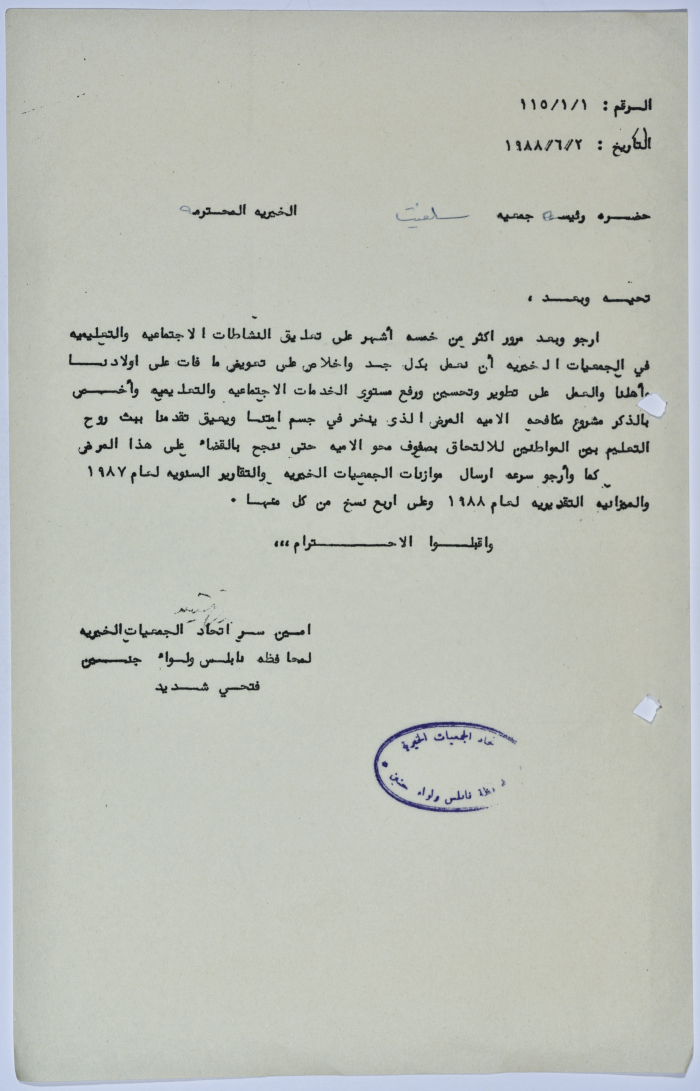 الرقم : ١١٥/١/١
التاريخ : ١٩٨٨/٦/٢
حضره رئيسة جمعيه سلفيت الخيريه المحترمه
تحيه وبعد ،
ارجو وبعد مرور اكثر من خمسه أشهر على تعليق النشاطات الاجتماعيه والتعليميه
في الجمعيات الخيريه أن نعمل بكل جد واخلاص على تعويض ما فات على اولادنا
وأهلنا والعمل على تطوير وتحسين ورفع مستوى الخدمات الاجتماعيه والتعليميه وأخص
بالذكر مشروع مكافحه الاميه المرض الذي ينخر في جسم امتنا ويعيق تقدمنا ببث روح
التعليم بين المواطنين للالتحاق بصفوف محو الاميه حتى ننجح بالقضاء على هذا المرض
كما وأرجو سرعه ارسال موازنات الجمعيات الخيريه والتقارير السنويه لعام ١٩٨٧
والميزانيه التقديريه لعام ١٩٨٨ وعلى اربع نسخ من كل منها .
واقبلوا الاحترام ،،،
امين سر اتحاد الجمعيات الخيريه
لمحافظه نابلس ولواء جنين
فتحي شديد
حاد الجمعيات الخيرية
ظة نابلس ولواء جنين